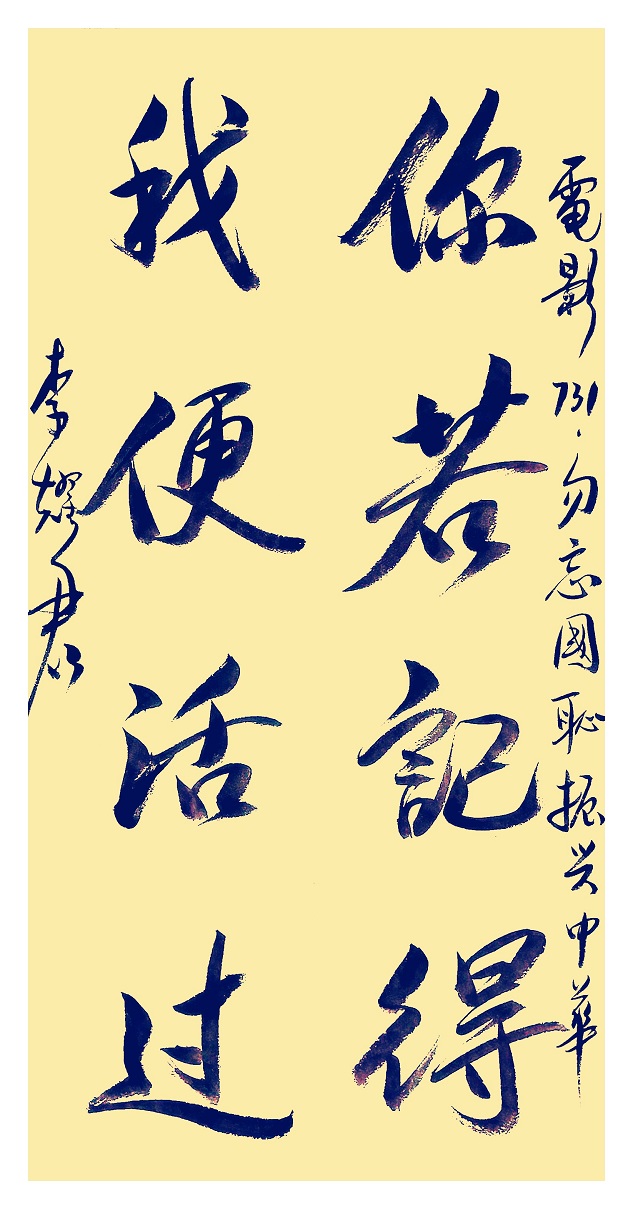 電影731·勿忘國恥振兴中華
你若記得
我便活过
李耀君